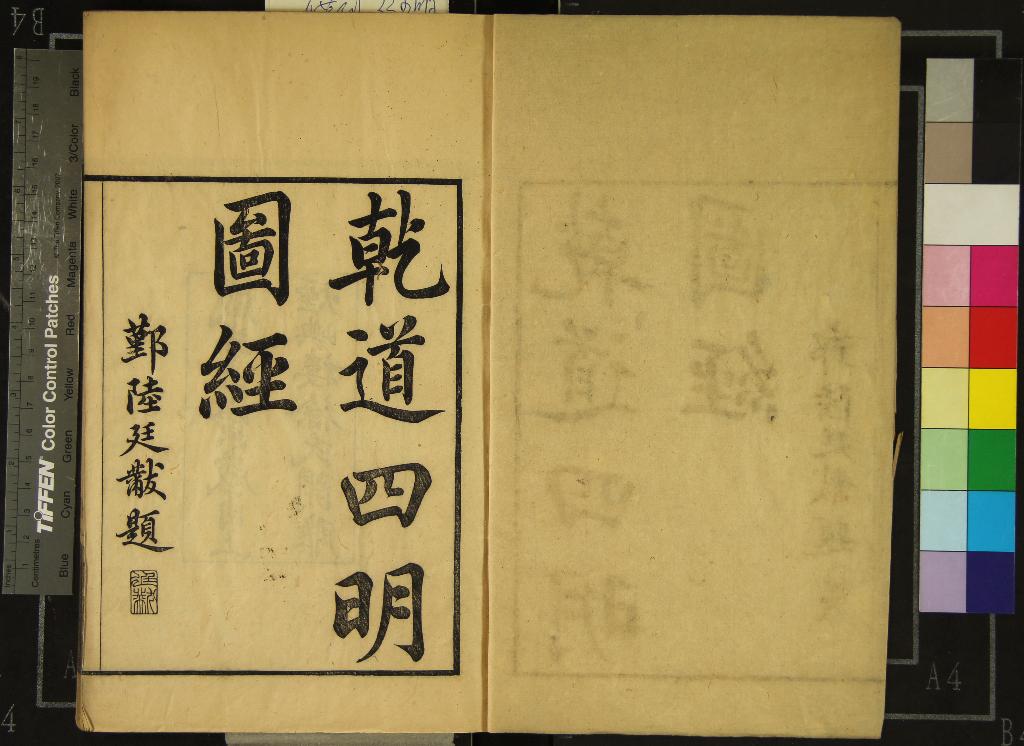 乾道四明
圖經
鄞陸廷黻題
廷黻
TIFFEN Color Control Patches
© The Tiffen Company, 2007
Inches
Centimetres
Blue
Cyan
Green
Yellow
Red
Magenta
White
3/Color
Black
B4
A4